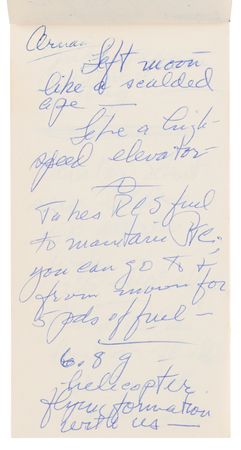 Cernan
Left moon
like a scalded
ape —
Like a high
speed elevator
Takes RCS fuel
to maintain PTC;
you can go to +
from moon for
5 pds of fuel —
6.8 g —
helicopter
flying formation
with us —